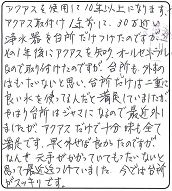 アクアスを使用して10年以上になります。
アクアス取付け1年前に、30万位の
浄水器を台所だけつけたのですが、
その1年後にアクアスを知り、オールセントラル
なので取り付けたのですが、台所も、外すの
はもったいないと思い、台所だけは二重に
良い水を使ってるんだと満足していましたが、
やはり台所はジャマになるので最近外し
ましたが、アクアスだけで十分味も全て
満足です。早く外せば良かったのですが、
なんせ元手がかかっていてもったいないと
思って最近迄つけていました。今では台所
がスッキリです。